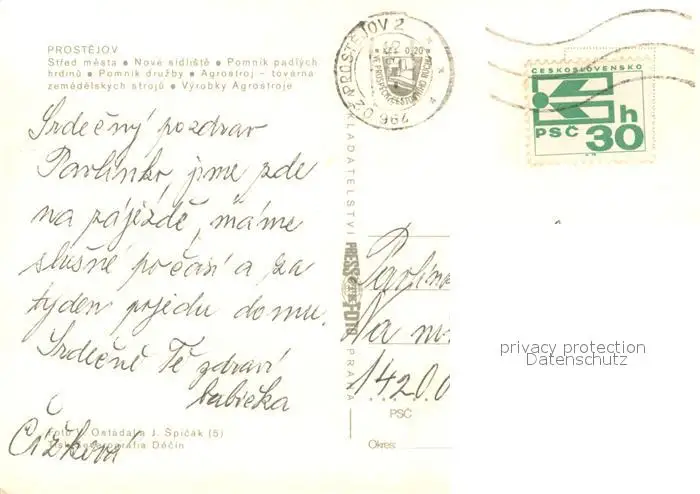 PROSTĚJOV
Střed města • Nové sídliště • Pomník padlých
hrdinů • Pomník družby • Agrostroj – továrna
zemědělských strojů • Výrobky Agrostroje
Srdečný pozdrav
Pavlínko, jsme zde
na zájezdě, máme
slušné počasí a za
týden pojedu domu.
Srdečně Tě zdraví
babička
Čížková
Foto Ostádala J. Špičák (5)
Děčín
PROSTĚJOV 2
ČESKOSLOVENSKO
h
PSČ 30
KLADATELSTVÍ PRESSFOTO PRAHA
Pavlín
Na
142 00
PSČ
Okres:
privacy protection
Datenschutz